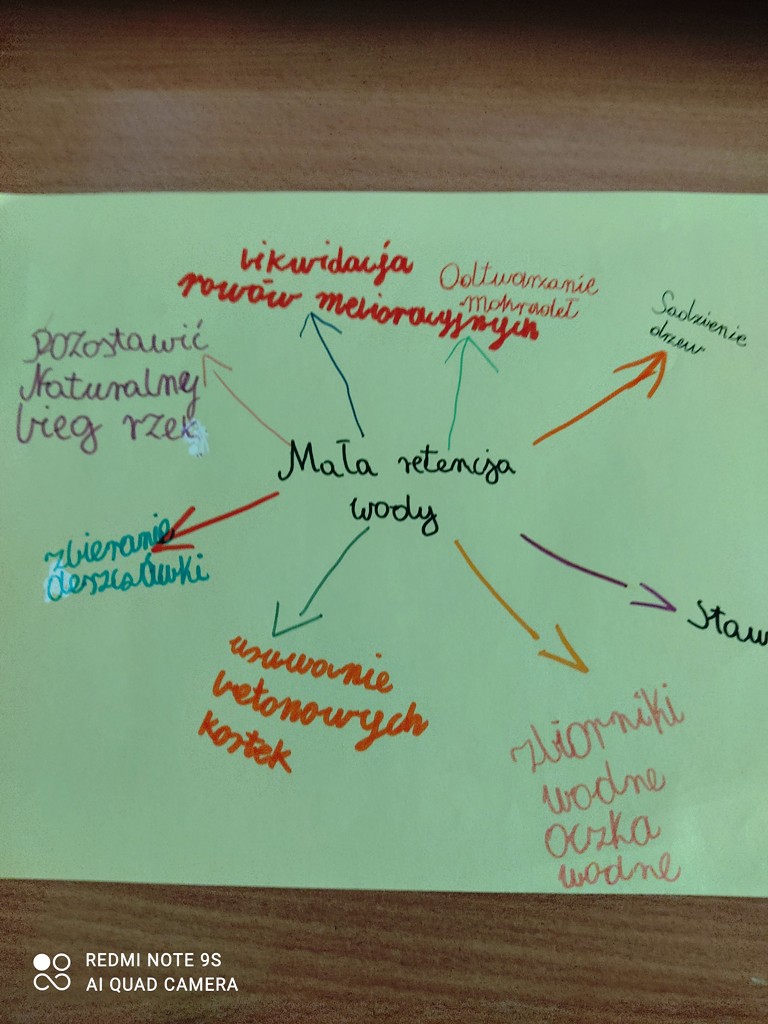 Likwidacja
rowów melioracyjnych
Odtwarzanie
Mokradeł
Sadzienie
drzew
Pozostawić
Naturalny
bieg rzek
Mała retencja
wody
zbieranie
deszczówki
Staw
usuwanie
betonowych
kostek
zbiorniki
wodne
Oczka
wodne
REDMI NOTE 9S
AI QUAD CAMERA